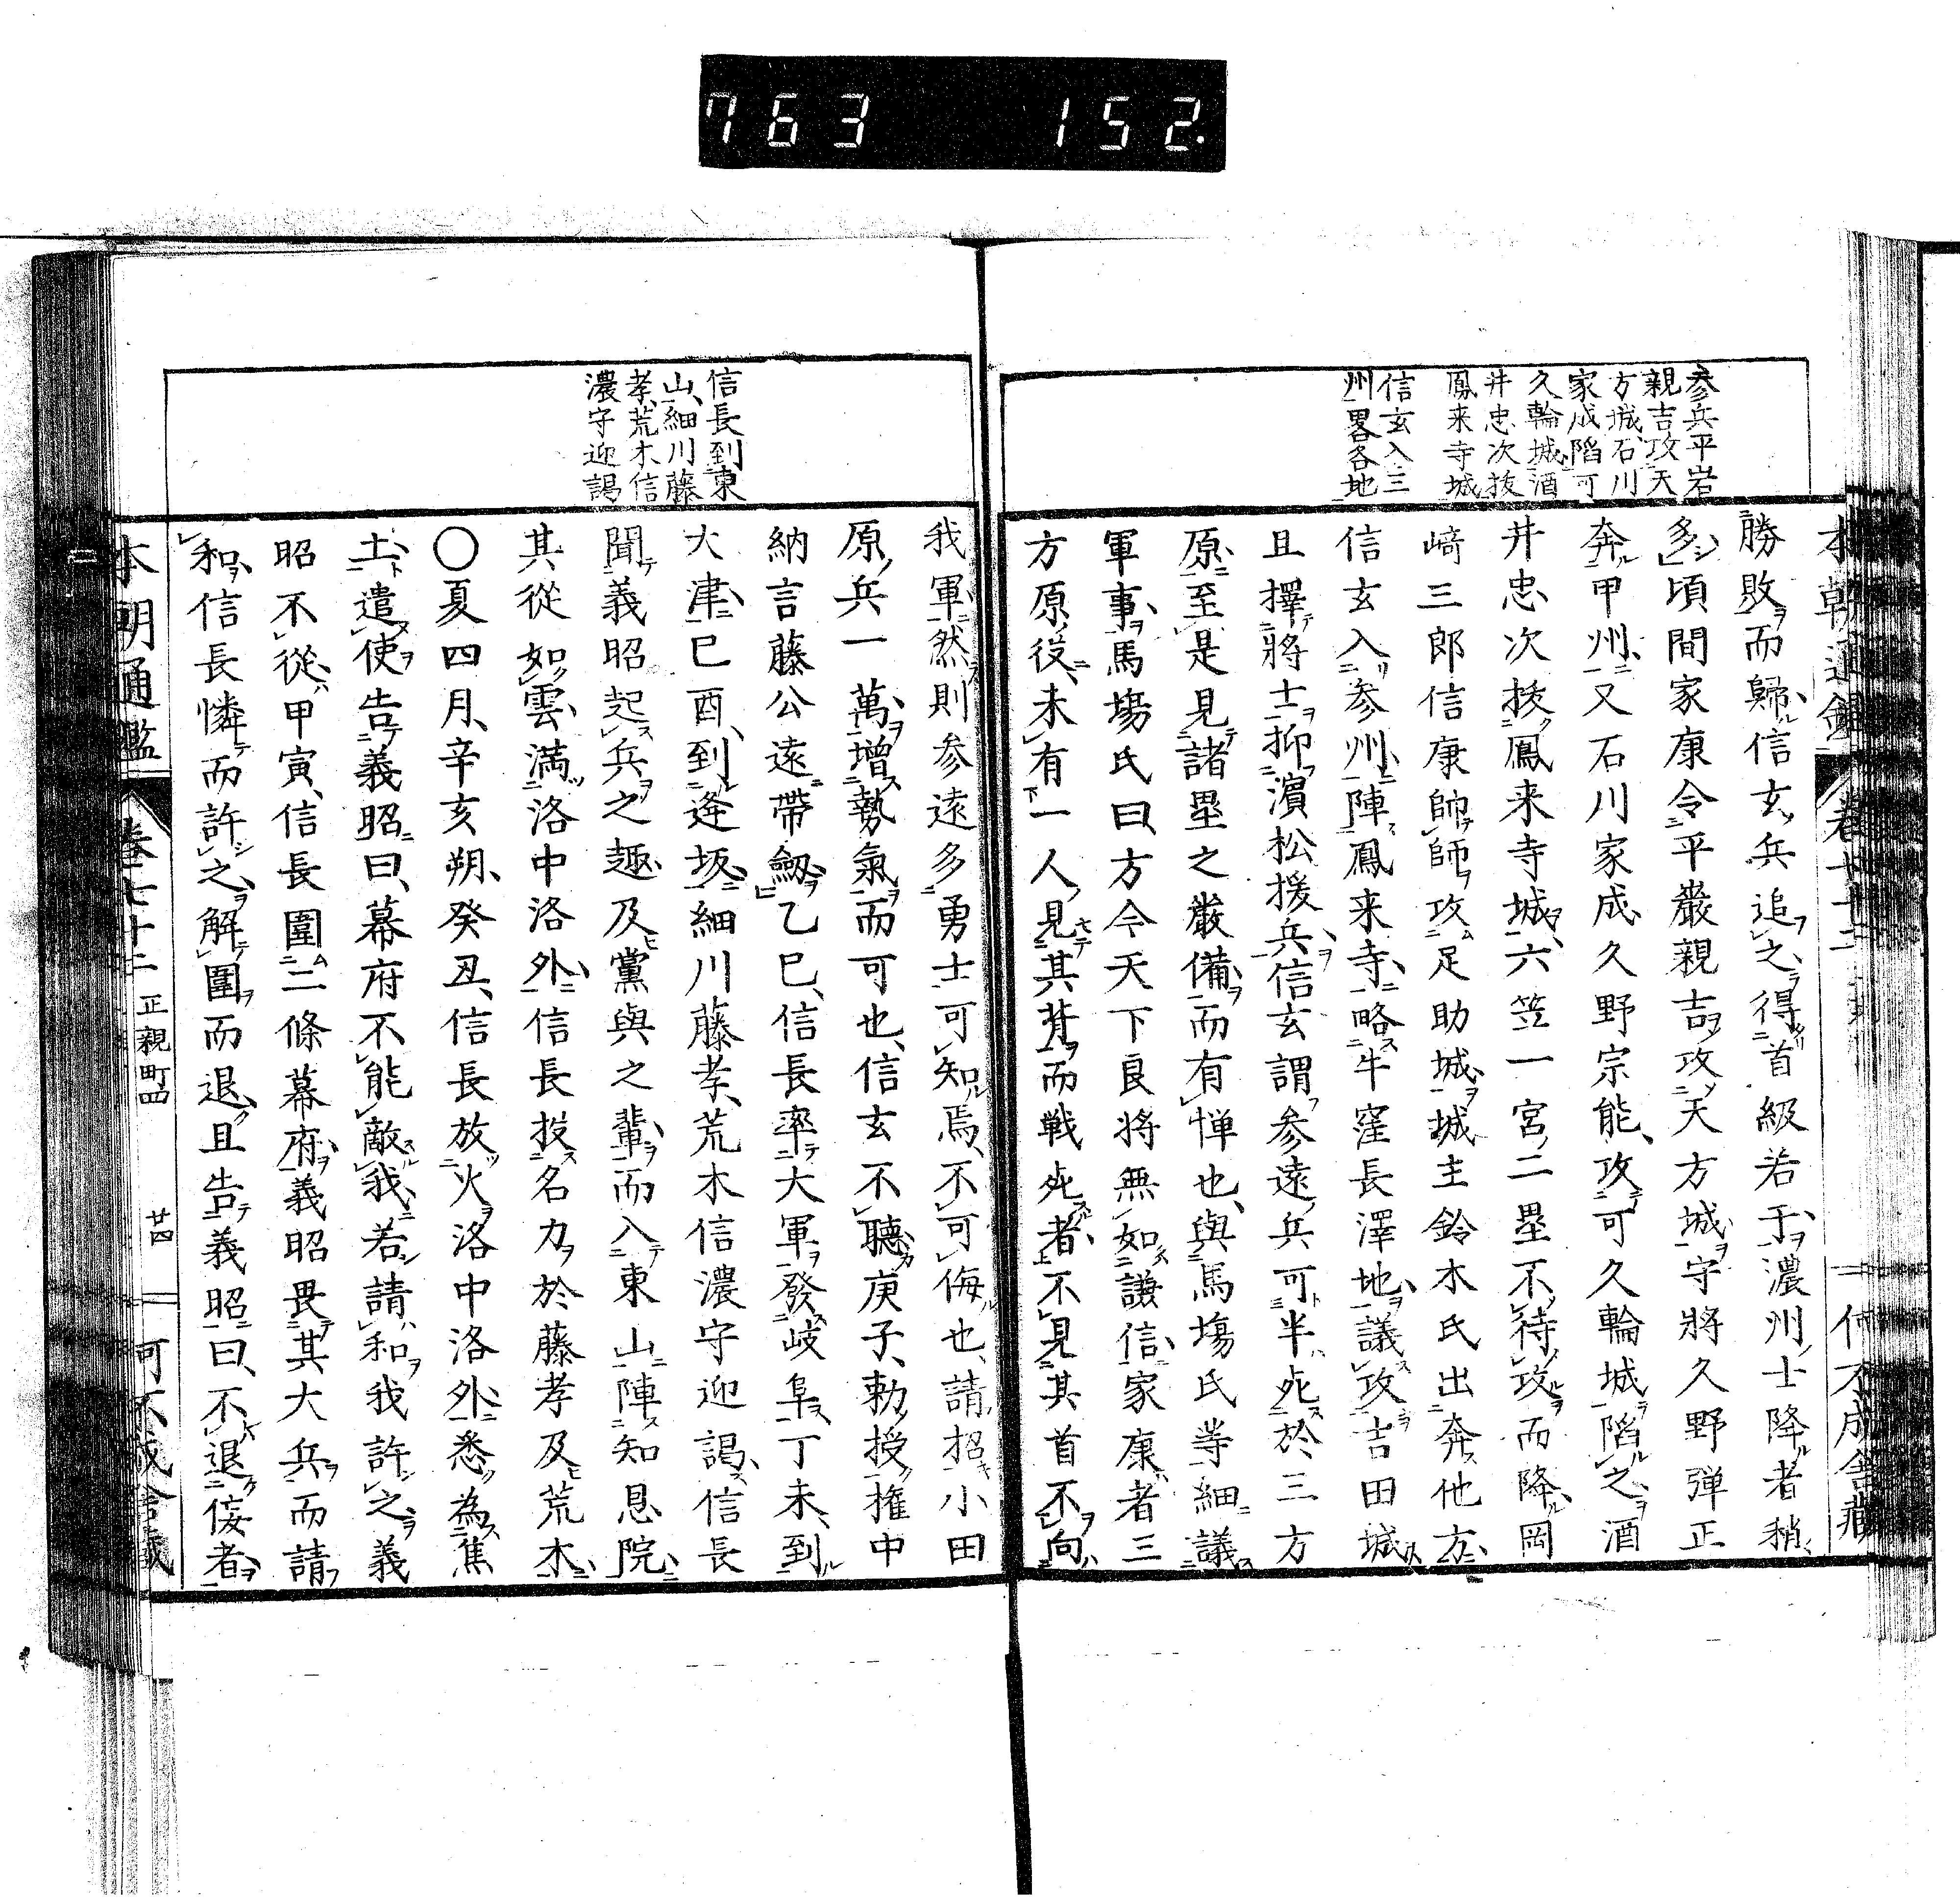 763 152.
参兵平岩
親吉攻天
方城石川
家成陷可
久輪城酒
井忠次抜
鳳来寺城
信玄入三
州畧各地
勝敗而歸信玄兵追之得首級若于濃州士降者稍
多頃間家康令平巖親吉攻天方城守將久野弾正
奔甲州又石川家成久野宗能攻可久輪城陷之酒
井忠次抜鳳来寺城六笠一宮二塁不待攻而降岡
﨑三郎信康帥師攻足助城城主鈴木氏出奔他方
信玄入参州陣鳳来寺略牛窪長澤地議攻吉田城
且擇將士抑濵松援兵信玄謂参遠兵可半死於三方
原至是見諸塁之嚴備而有憚也與馬塲氏等細議
軍事馬塲氏曰方今天下良將無如謙信家康者三
方原役未有一人見其背而戦死者不見其首不向
信長到東
山細川藤
孝荒木信
濃守迎謁
我軍然則参遠多勇士可知焉不可侮也請招小田
原兵一萬增勢氣而可也信玄不聽庚子勅授權中
納言藤公遠帶劔乙巳信長率大軍發岐阜丁未到
大津巳酉到逄坂細川藤孝荒木信濃守迎謁信長
聞義昭起兵之趣及黨與之輩而入東山陣知恩院
其從如雲満洛中洛外信長投名力於藤孝及荒木
〇夏四月辛亥朔癸丑信長放火洛中洛外悉為焦
土遣使告義昭曰幕府不能敵我若請和我許之義
昭不從甲寅信長圍二條幕府義昭畏其大兵而請
和信長憐而許之解圍而退且告義昭曰不退侫者
本朝通鑑 卷七十二 正親町四 廿四 可不成舎藏